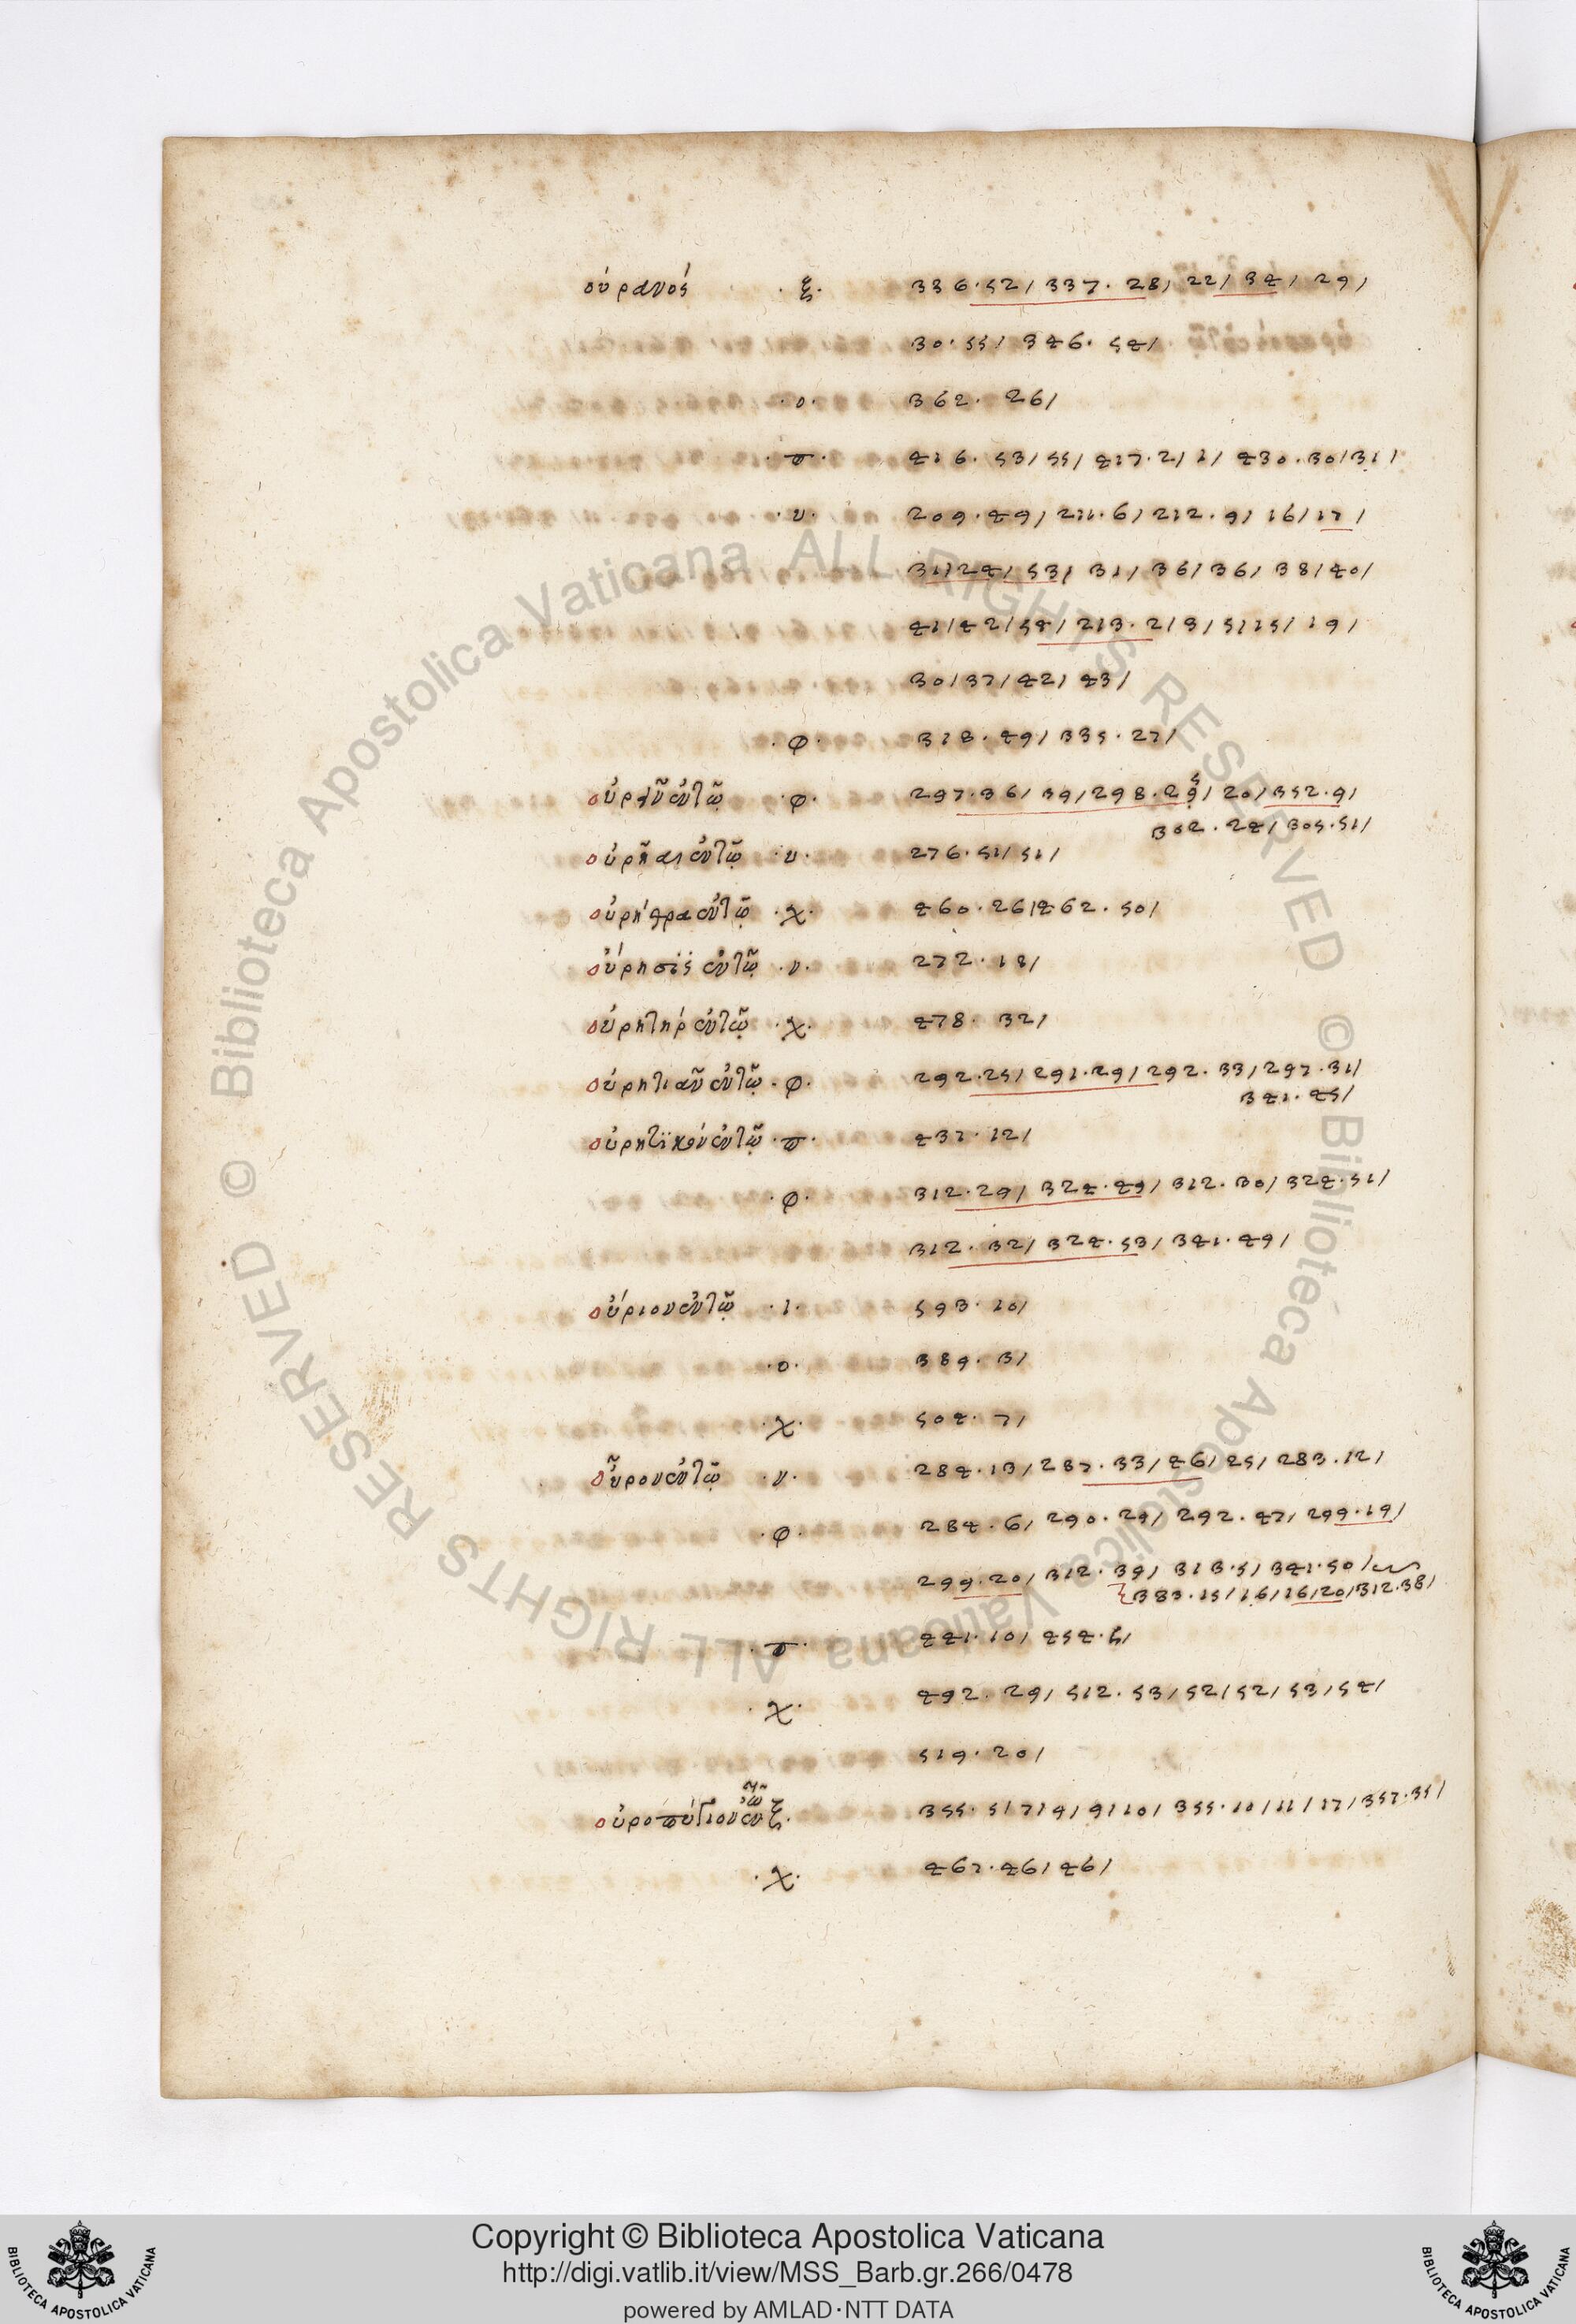 οὐρανός · ξ · 336.52/ 337.28/ 22/ 34/ 29/
30.55/ 346.54/
· ο · 362. 26/
· π · 416. 53/ 55/ 417.2/ 1/ 430.30/31/
· υ · 209.49/ 211.6/ 212.9/ 16/ 17/
31/24/ 53/ 31/ 36/36/ 38/40/
41/42/54/ 213.2/3/5/15/ 19/
30/37/42/ 43/
· φ · 318.49/ 335.27/
οὐρεῖν ἐν τῷ · φ · 297.36/ 39/298.29/ 20/ 352.9/
302.24/ 305.51/
οὐρῆσαι ἐν τῷ · υ · 276.51/51/
οὐρήθρα ἐν τῷ · χ · 460.26/462.50/
οὔρησις ἐν τῷ · ν · 272.18/
οὐρητήρ ἐν τῷ · χ · 478. 32/
οὐρητιᾶν ἐν τῷ · φ · 292.25/ 291.29/ 292.33/297.31/
341.45/
οὐρητικόν ἐν τῷ · π · 431.12/
· φ · 312.29/ 324.49/ 312.30/ 324.51/
312.32/ 324.53/ 341.49/
οὔριον ἐν τῷ · ι · 593.10/
· ο · 389.3/
· χ · 504.7/
οὖρον ἐν τῷ · ν · 284.13/ 287.33/ 46/ 25/ 283.12/
· φ · 284.6/ 290.29/ 292.47/ 299.19/
299.20/ 312.39/ 313.5/ 341.50/
383.15/16/16/20/312.38/
· π · 441.10/ 454.5/
· χ · 492.29/ 512.53/52/52/53/54/
519.20/
οὐροπύγιον ἐν τῷ ξ · 355.5/7/9/9/10/ 355.10/11/17/357.35/
· χ · 467.46/46/
© Biblioteca Apostolica Vaticana ALL RIGHTS RESERVED © Biblioteca Apostolica Vaticana ALL RIGHTS RESERVED
Copyright © Biblioteca Apostolica Vaticana
http://digi.vatlib.it/view/MSS_Barb.gr.266/0478
powered by AMLAD·NTT DATA
BIBLIOTECA APOSTOLICA VATICANA
BIBLIOTECA APOSTOLICA VATICANA